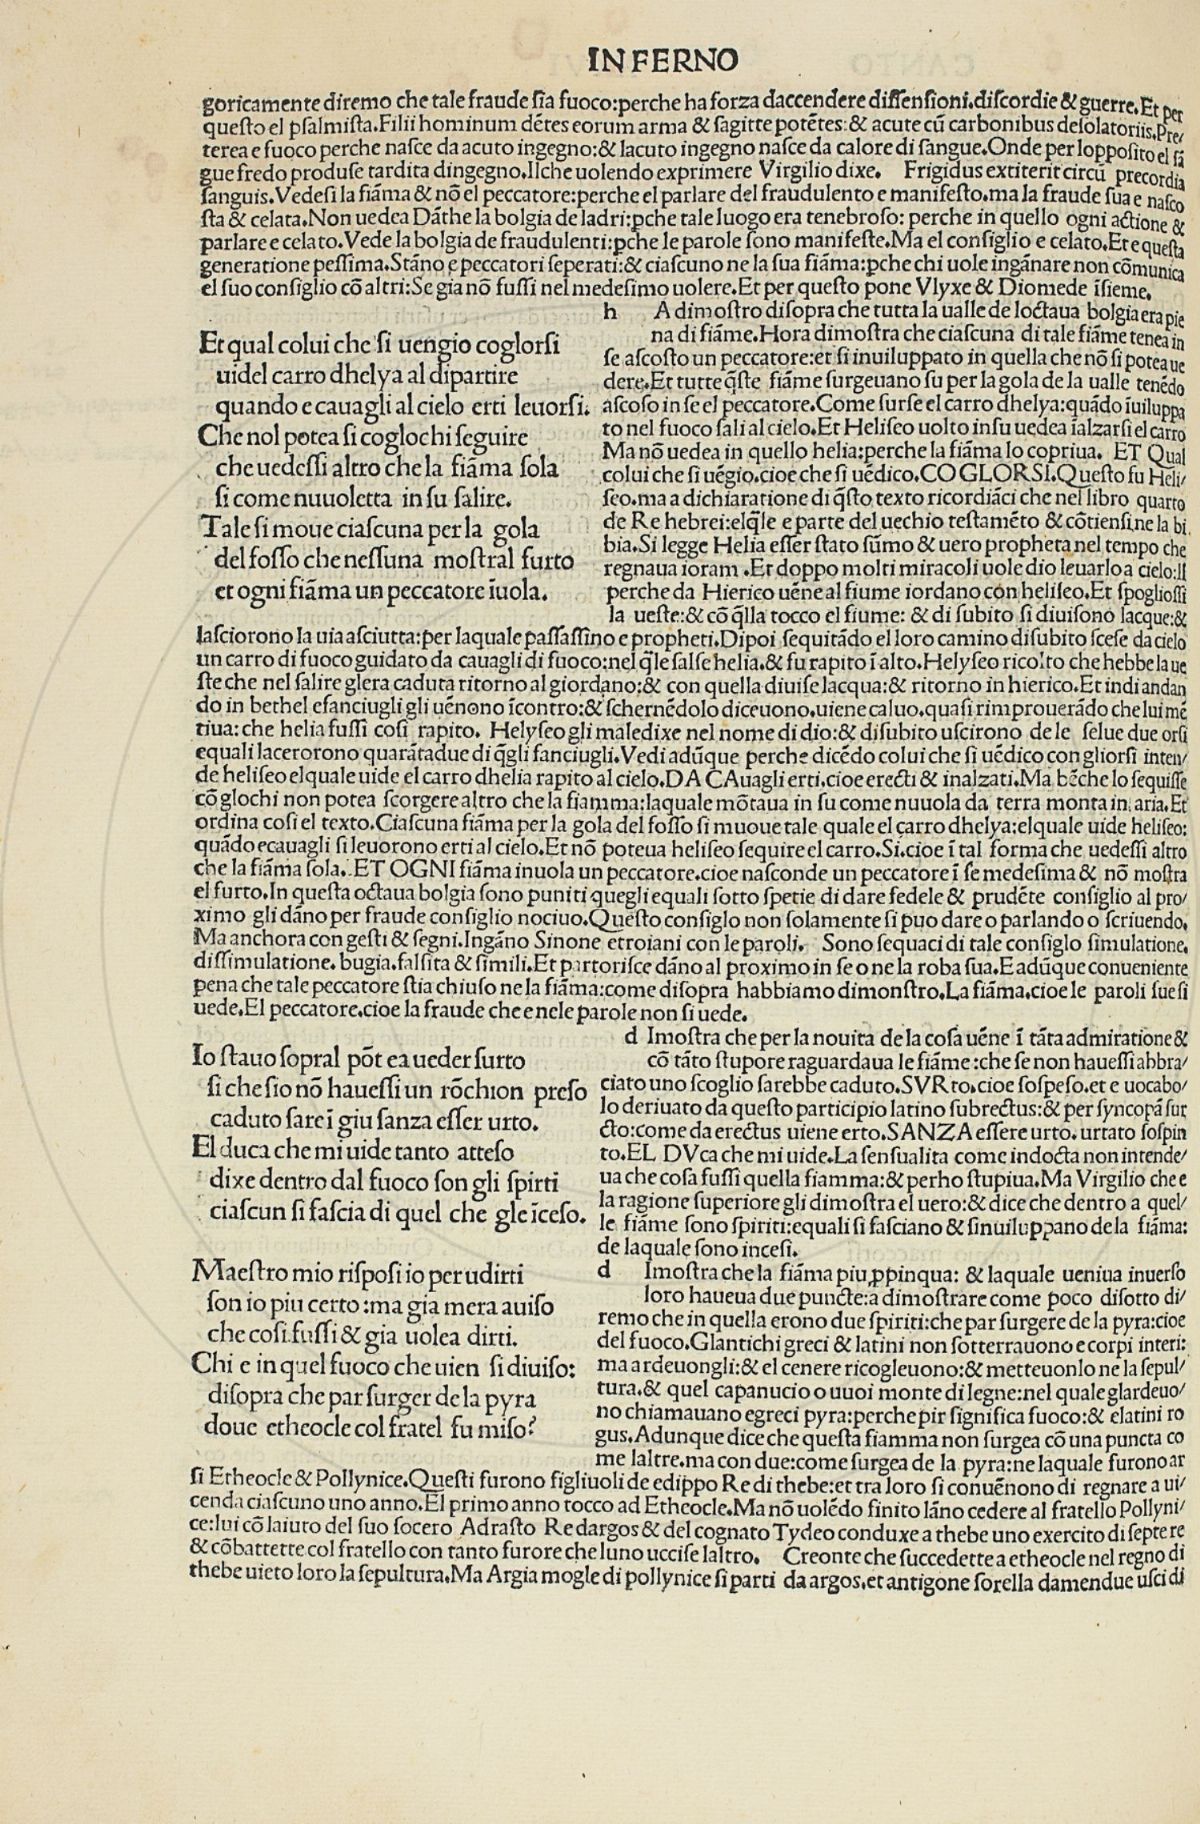 INFERNO
goricamente diremo che tale fraude ſia fuoco:perche ha forza daccendere diſſenſioni.diſcordie & guerre.Et per
queſto el pſalmiſta.Filii hominum dētes eorum arma & ſagitte potētes:& acute cū carbonibus deſolatoriis.Pre/
terea e fuoco perche naſce da acuto ingegno:& lacuto ingegno naſce da calore di ſangue.Onde per loppoſito el ſā
gue fredo produſe tardita dingegno.Ilche uolendo exprimere Virgilio dixe. Frigidus extiterit circū precordia
ſanguis.Vedeſi la fiāma & nō el peccatore:perche el parlare del fraudulento e manifeſto.ma la fraude ſua e naſco
ſta & celata.Non uedea Dāthe la bolgia de ladri:pche tale luogo era tenebroſo: perche in quello ogni actione &
parlare e celato.Vede la bolgia de fraudulenti:pche le parole ſono manifeſte.Ma el conſiglio e celato.Et e queſta
generatione peſſima.Stāno e peccatori ſeperati:& ciaſcuno ne la ſua fiāma:pche chi uole ingānare non cōmunica
el ſuo conſiglio cō altri:Se gia nō fuſſi nel medeſimo uolere.Et per queſto pone Vlyxe & Diomede īſieme.
Et qual colui che ſi uengio coglorſi
uidel carro dhelya al dipartire
quando e cauagli al cielo erti leuorſi.
Che nol potea ſi coglochi ſeguire
che uedeſſi altro che la fiāma ſola
ſi come nuuoletta in ſu ſalire.
Tale ſi moue ciaſcuna per la gola
del foſſo che neſſuna moſtral furto
et ogni fiāma un peccatore īuola.
h A dimoſtro diſopra che tutta la ualle de loctaua bolgia era pie
na di fiāme.Hora dimoſtra che ciaſcuna di tale fiāme tenea in
ſe aſcoſto un peccatore:et ſi inuiluppato in quella che nō ſi potea ue
dere.Et tutte q̄ſte fiāme ſurgeuano ſu per la gola de la ualle tenēdo
aſcoſo in ſe el peccatore.Come ſurſe el carro dhelya:quādo īuiluppa
to nel fuoco ſali al cielo.Et Heliſeo uolto inſu uedea īalzarſi el carro
Ma nō uedea in quello helia:perche la fiāma lo copriua. ET Qual
colui che ſi uēgio.cioe che ſi uēdico.COGLORSI.Queſto fu Heli/
ſeo.ma a dichiaratione di q̄ſto texto ricordiāci che nel libro quarto
de Re hebrei:elq̄le e parte del uechio teſtamēto & cōtienſi.ne la bi
bia.Si legge Helia eſſer ſtato ſūmo & uero propheta nel tempo che
regnaua ioram .Et doppo molti miracoli uole dio leuarlo a cielo:Il
perche da Hierico uēne al fiume iordano con heliſeo.Et ſpoglioſſi
la ueſte:& cō q̄lla tocco el fiume: & di ſubito ſi diuiſono lacque:&
laſciorono la uia aſciutta:per laquale paſſaſſino e propheti.Dipoi ſequitādo el loro camino diſubito ſceſe da cielo
un carro di fuoco guidato da cauagli di fuoco:nel q̄le ſalſe helia.& fu rapito ī alto.Helyſeo ricolto che hebbe la ue
ſte che nel ſalire glera caduta ritorno al giordano:& con quella diuiſe lacqua:& ritorno in hierico.Et indi andan
do in bethel efanciugli gli uēnono īcontro:& ſchernēdolo diceuono.uiene caluo.quaſi rimprouerādo che lui mē
tiua: che helia fuſſi coſi rapito. Helyſeo gli maledixe nel nome di dio:& diſubito uſcirono de le ſelue due orſi
equali lacerorono quarātadue di q̄gli fanciugli.Vedi adūque perche dicēdo colui che ſi uēdico con gliorſi inten/
de heliſeo elquale uide el carro dhelia rapito al cielo.DA CAuagli erti.cioe erecti & inalzati.Ma bēche lo ſequiſſe
cō glochi non potea ſcorgere altro che la fiamma:laquale mōtaua in ſu come nuuola da terra monta in aria.Et
ordina coſi el texto.Ciaſcuna fiāma per la gola del foſſo ſi muoue tale quale el carro dhelya:elquale uide heliſeo:
quādo ecauagli ſi leuorono erti al cielo.Et nō poteua heliſeo ſequire el carro.Si.cioe ī tal forma che uedeſſi altro
che la fiāma ſola. ET OGNI fiāma inuola un peccatore.cioe naſconde un peccatore ī ſe medeſima & nō moſtra
el furto.In queſta octaua bolgia ſono puniti quegli equali ſotto ſpetie di dare fedele & prudēte conſiglio al pro/
ximo gli dāno per fraude conſiglio nociuo.Queſto conſiglo non ſolamente ſi puo dare o parlando o ſcriuendo.
Ma anchora con geſti & ſegni.Ingāno Sinone etroiani con le paroli. Sono ſequaci di tale conſiglo ſimulatione.
diſſimulatione. bugia.falſita & ſimili.Et partoriſce dāno al proximo in ſe o ne la roba ſua.E adūque conueniente
pena che tale peccatore ſtia chiuſo ne la fiāma:come diſopra habbiamo dimonſtro.La fiāma.cioe le paroli ſue ſi
uede.El peccatore.cioe la fraude che e nele parole non ſi uede.
Io ſtauo ſopral pōt ea ueder ſurto
ſi che ſio nō haueſſi un rōchion preſo
caduto ſare ī giu ſanza eſſer urto.
El duca che mi uide tanto atteſo
dixe dentro dal fuoco ſon gli ſpirti
ciaſcun ſi faſcia di quel che gle īceſo.
d Imoſtra che per la nouita de la coſa uēne ī tāta admiratione &
cō tāto ſtupore raguardaua le fiāme :che ſe non haueſſi abbra/
ciato uno ſcoglio ſarebbe caduto.SVRto.cioe ſoſpeſo.et e uocabo/
lo deriuato da queſto participio latino ſubrectus:& per ſyncopā ſur
cto:come da erectus uiene erto.SANZA eſſere urto. urtato ſoſpin
to.EL DVca che mi uide.La ſenſualita come indocta non intende/
ua che coſa fuſſi quella fiamma:& perho ſtupiua.Ma Virgilio che e
la ragione ſuperiore gli dimoſtra el uero:& dice che dentro a quel/
le fiāme ſono ſpiriti:equali ſi faſciano & ſinuiluppano de la fiāma:
de laquale ſono inceſi.
Maeſtro mio riſpoſi io per udirti
ſon io piu certo:ma gia mera auiſo
che coſi fuſſi & gia uolea dirti.
Chi e in quel fuoco che uien ſi diuiſo:
diſopra che par ſurger de la pyra
doue etheocle col fratel fu miſo?
d Imoſtra che la fiāma piu ꝓpinqua: & laquale ueniua inuerſo
loro haueua due puncte:a dimoſtrare come poco diſotto di/
remo che in quella erono due ſpiriti:che par ſurgere de la pyra:cioe
del fuoco.Glantichi greci & latini non ſotterrauono e corpi interi:
ma ardeuongli:& el cenere ricogleuono:& metteuonlo ne la ſepul/
tura.& quel capanucio o uuoi monte di legne:nel quale glardeuo/
no chiamauano egreci pyra:perche pir ſignifica fuoco:& elatini ro
gus.Adunque dice che queſta fiamma non ſurgea cō una puncta co
me laltre.ma con due:come ſurgea de la pyra:ne laquale furono ar
ſi Etheocle & Pollynice.Queſti furono figliuoli de edippo Re di thebe:et tra loro ſi conuēnono di regnare a ui/
cenda ciaſcuno uno anno.El primo anno tocco ad Etheocle.Ma nō uolēdo finito lāno cedere al fratello Pollyni/
ce:lui cō laiuto del ſuo ſocero Adraſto Re dargos & del cognato Tydeo conduxe a thebe uno exercito di ſepte re
& cōbattette col fratello con tanto furore che luno ucciſe laltro. Creonte che ſuccedette a etheocle nel regno di
thebe uieto loro la ſepultura.Ma Argia mogle di pollynice ſi parti da argos.et antigone ſorella damendue uſci di